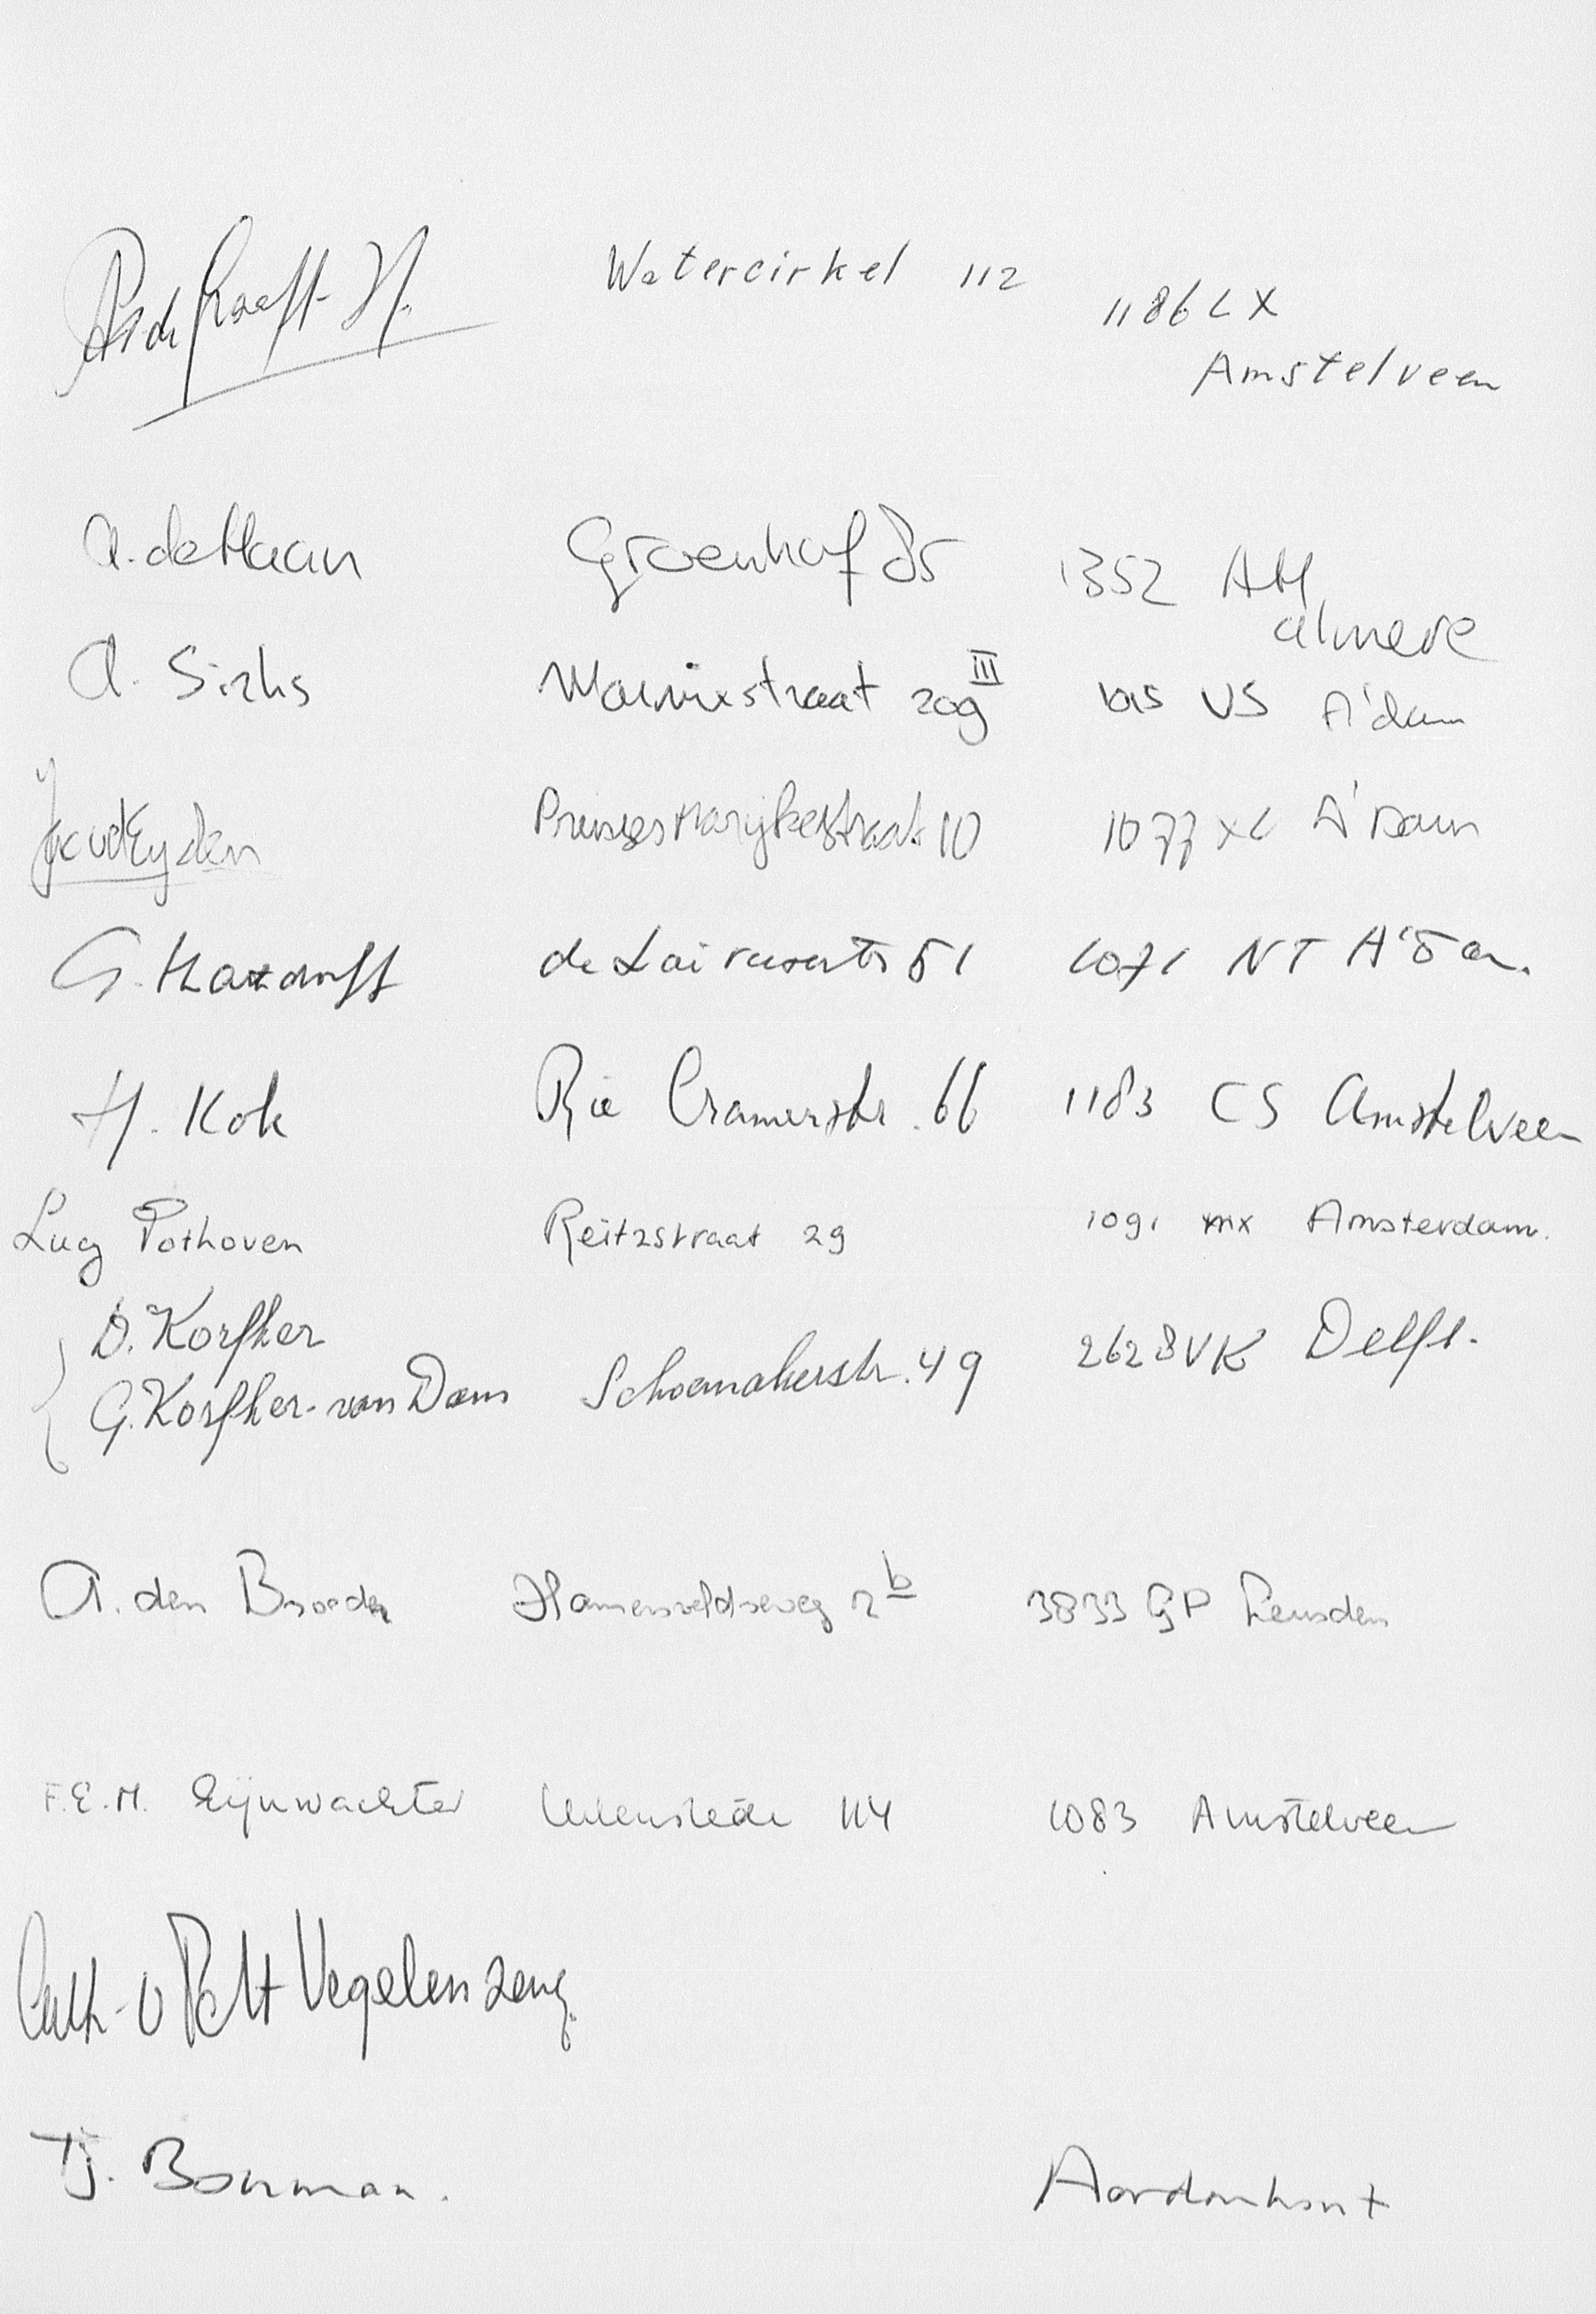 de Graaff-H. Watercirkel 112 1186 LX
Amstelveen
A. de Haan Groenhof 85 1352 AH
Almere
A. Sirks Marnixstraat 209 III 1015 VS A'dam
Prinses Marijkestraat 10 1077 XC A'Dam
G. de Lairessestr 51 1071 NT A'dam.
H. Kok Rie Cramerstr. 66 1183 CS Amstelveen
Lucy Pothoven Reitzstraat 29 1091 MX Amsterdam.
D. Korfker
G. Korfker-van Dam Schoemakerstr. 49 2628 VK Delft.
A. den Broeder Hamersveldseweg 2b 3833 GP Leusden
F.E.M. Eijnwachter Uilenstede 114 1083 Amstelveen
Cath. v Pelt Vegelenzang.
Tj. Bouman. Aerdenhout